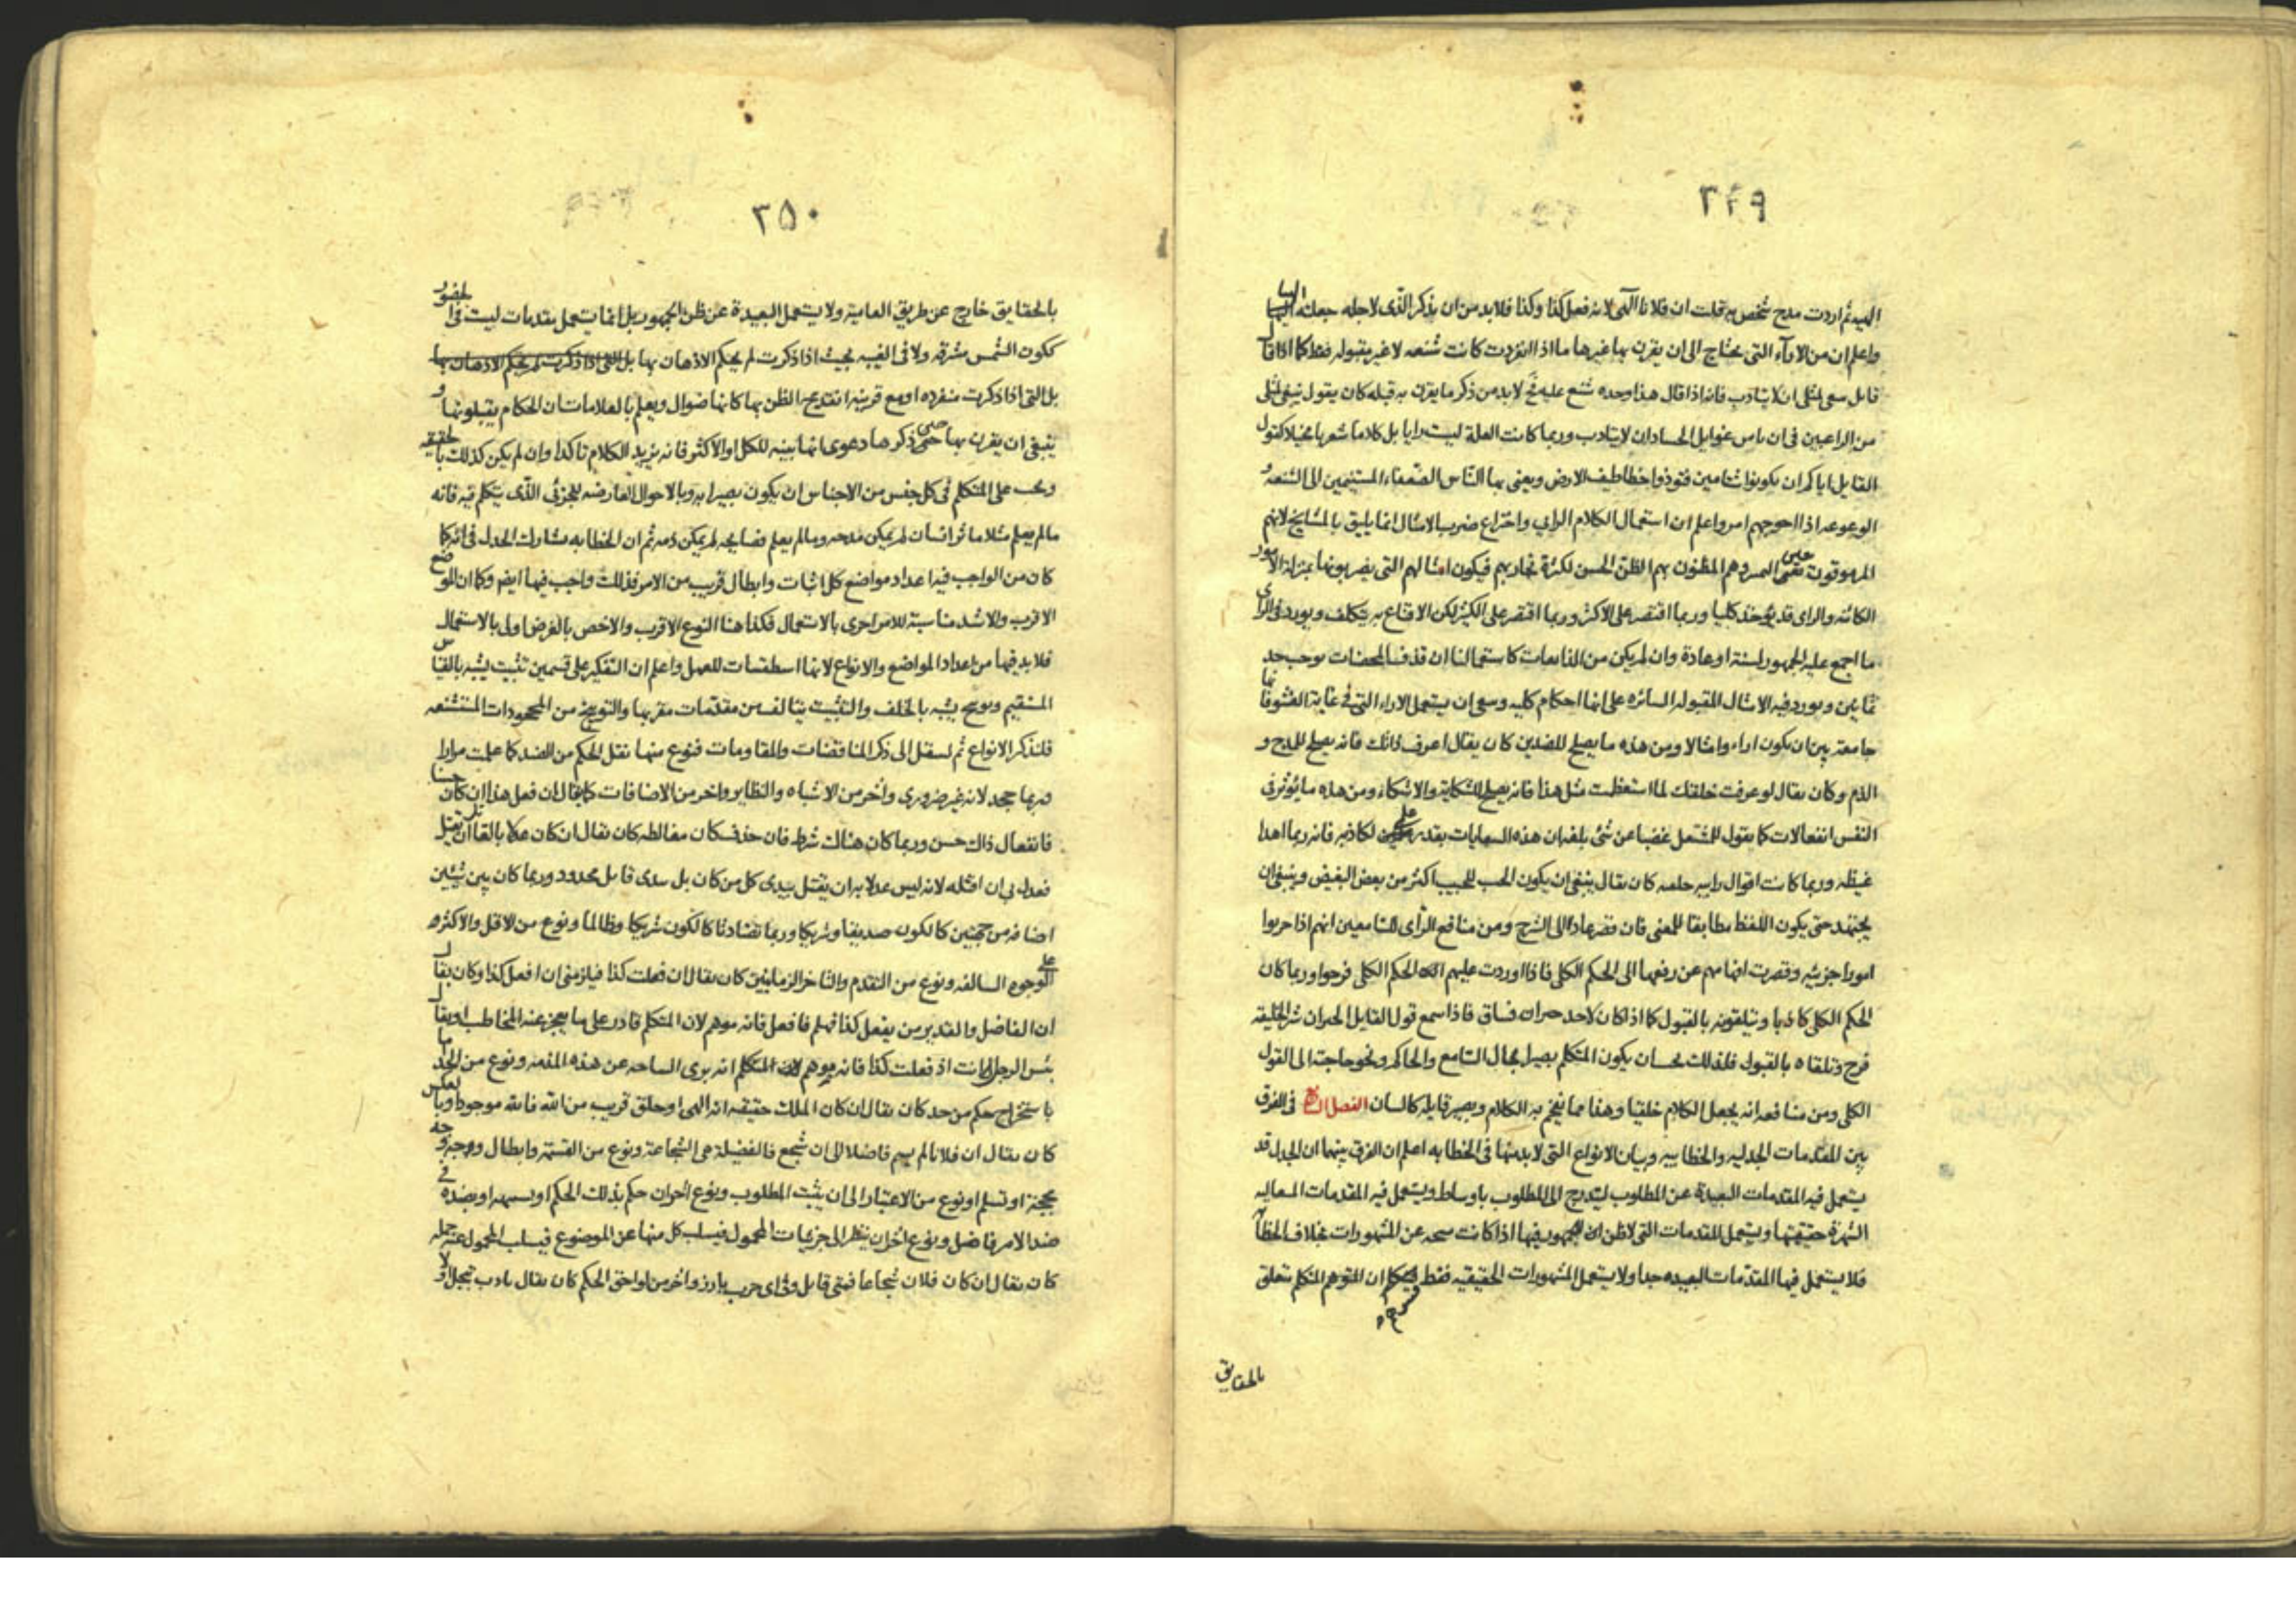 ٣٤٩
ثم اردت مدح شخص به قلت ان فلانا الهى لانه فعل كذا وكذا فلا بد من ان يذكر الذى لاجله جعلته
واعلم ان من الاراء التى يحتاج الى ان يقرن بها غيرها ما اذا انفردت كانت شنعه لا غير مقبوله فقط كما اذا قال
قايل لمثلى ان لا يتادب فانه اذا قال هذا وحده شنع عليه فح لا بد من ذكر ما يقرن به قبله كان يقول ينبغى لمثلى
من الراغبين فى ان يامن غوايل الحساد ان لا يتادب وربما كانت العلة ليست رايا بل كلاما شعريا مخيلا كقول
القايل اياكم ان تكونوا شتامين فتوذوا خطاطيف الارض ويعنى بها الناس الضعفاء المستنيمين الى
اذا احوجهم امر واعلم ان استعمال الكلام الرايى واختراع ضرب الامثال انما يليق بالمشايخ لانهم
المرموقون المظنون بهم الظن الحسن لكثرة تجاربهم فيكون امثالهم التى يضربونها بمنزلة الامور
الكائنه والراى قد يؤخذ كليا وربما اقتصر على الاكثر وربما اقتصر على الكثير لكن الاقناع به يتكلف ويورد فى الراى
ما اجمع عليه الجمهور لسنة او عادة وان لم يكن من كاستعمالنا ان قذف المحصنات يوجب حد
ثمانين ويورد فيه الامثال المقبوله السائره على انها احكام كليه ان يستعمل الاراء التى فى غاية
جامعة بين ان يكون اراء وامثالا ومن هذه ما يصلح للضدين كان يقال اعرف ذاتك فانه يصلح للمدح و
الذم وكان يقال لو عرفت خلقتك لما استعظمت مثل هذا فانه يصلح للشكاية والاشكاء ومن هذه ما يؤثر فى
النفس انفعالات كما يقول المشتعل غضبا عن شئ بلغه ان هذه السعايات كاذبه فانه ربما اهدا
غيظه وربما كانت اقوال كان يقال ينبغى ان يكون الحب للحبيب اكثر من بعض البغيض وينبغى ان
يجتهد حتى يكون اللفظ مطابقا للمعنى فان قصر عاد الى الشرح ومن منافع الراى للسامعين انهم اذا جربوا
امورا جزئيه وقصرت افهامهم عن رفعها الى الحكم الكلى فاذا اوردت عليهم الحكم الكلى فرحوا وربما كان
الحكم الكلى كاذبا ويتلقونه بالقبول كما اذا كان لاحد جيران فساق فاذا سمع قول القايل الجيران شر الخليقه
فرح وتلقاه بالقبول فلذلك يجب ان يكون المتكلم بصيرا بحال السامع والحاكم ونحو حاجته الى القول
الكلى ومن منافعه انه يجعل الكلام خلقيا وهذا مما يفخم به الكلام ويصير قايله كالسان الفصل فى الفرق
بين المقدمات الجدليه والخطابيه وبيان الانواع التى لا بد منها فى الخطابه اعلم ان الفرق بينهما ان الجدل قد
يستعمل فيه المقدمات البعيدة عن المطلوب ليتدرج الى المطلوب باوساط ويستعمل فيه المقدمات
الشهرة حقيقتها ويستعمل المقدمات التى لا ظن للجمهور فيها اذا كانت عن المشهورات بخلاف الخطابة
فلا يستعمل فيها المقدمات البعيده جدا ولا يستعمل المشهورات الحقيقيه فقط ان المتوهم المتكلم تعلق
بالحقايق
٣٥٠
بالحقايق خارج عن طريق العاميه ولا يستعمل البعيدة عن ظن الجمهور بل انما يستعمل مقدمات ليست فى الحضور
ككون الشمس مشرقه ولا فى الغيبه بحيث اذا ذكرت لم يحكم الاذهان بها بل التى اذا ذكرت لم يحكم الاذهان بها
بل التى اذا ذكرت منفرده او مع قرينه انقدح الظن بها كانها ضوال ويعلم بالعلامات ان الحكام يقبلونها و
ينبغى ان يقرن بها حين ذكرها دعوى انها بينه للكل او الاكثر فانه يزيد الكلام تاكدا وان لم يكن كذلك بالحقيقه
ويجب على المتكلم فى كل جنس من الاجناس ان يكون بصيرا به وبالاحوال العارضه للجزئى الذى يتكلم فيه فانه
ما لم يعلم مثلا ماثر انسان لم يمكن مدحه وما لم يعلم فضايحه لم يمكن ذمه ثم ان الخطابه مشارك الجدل فى انه كما
كان من الواجب فيه اعداد مواضع كل اثبات وابطال قريب من الامر فذلك واجب فيها ايضا وكما ان الموضع
الاقرب والاشد مناسبة للامر احرى بالاستعمال فكذا هنا النوع الاقرب والاخص بالغرض اولى بالاستعمال
فلا بد فيها من اعداد المواضع والانواع لانها اسطقسات للعمل واعلم ان التفكير على قسمين تثبيت يشبه بالقياس
المستقيم وتوبيخ يشبه بالخلف والتثبيت يتالف من مقدمات مقر بها والتوبيخ من المجحودات المستشنعه
فلنذكر الانواع ثم لننتقل الى ذكر المناقضات والمقاومات فنوع منها نقل الحكم من الضد كما علمت مرارا
وربما جحد لانه غير ضرورى واخر من الاشباه والنظاير واخر من الاضافات كما يقال ان فعل هذا ان كان حسنا
فانفعال ذاك حسن وربما كان هناك شرط فان حذف كان مغالطه كان يقال ان كان عدلا بالقاتل ان يقتل
فعدل بى ان اقتله لانه ليس عدلا به ان يقتل بيدى كل من كان بل بيدى قاتل محدود وربما كان بين شيئين
اضافه من جهتين كالكون صديقا وشريكا وربما تضادتا كالكون شريكا وظالما ونوع من الاقل والاكثر و
على الوجوه السالفه ونوع من التقدم والتاخر الزمانيين كان يقال ان فعلت كذا فيلزمنى ان افعل كذا وكان يقال
ان الفاضل والقدير من يفعل كذا فهلم فافعل فانه موهم لان المتكلم قادر على ما يعجز عنه المخاطب او يقال
بئس الرجل انت اذ فعلت كذا فانه يوهم ان المتكلم انه برى الساحه عن هذه المذمه ونوع من الحد اما
باستخراج حكم من حد كان يقال ان كان الملك حقيقه انه الهى او خلق قريب من الله فالله موجود او بالعكس
كان يقال ان فلانا لم يسم فاضلا الى ان شجع فالفضيلة هى الشجاعة ونوع من القسمة وابطال وجه وجه
بحجة او تسلم او نوع من الاعتبار الى ان يثبت المطلوب ونوع اخر ان حكم بذلك الحكم او بضده فى
ضد الامر فاضل ونوع اخر ان ينظر الى جزئيات المحمول فيسلب كل منها عن الموضوع فيسلب المحمول عنه جمله
كان يقال ان كان فلان شجاعا فمتى قاتل وفى اى حرب بارز واخر من لواحق الحكم كان يقال